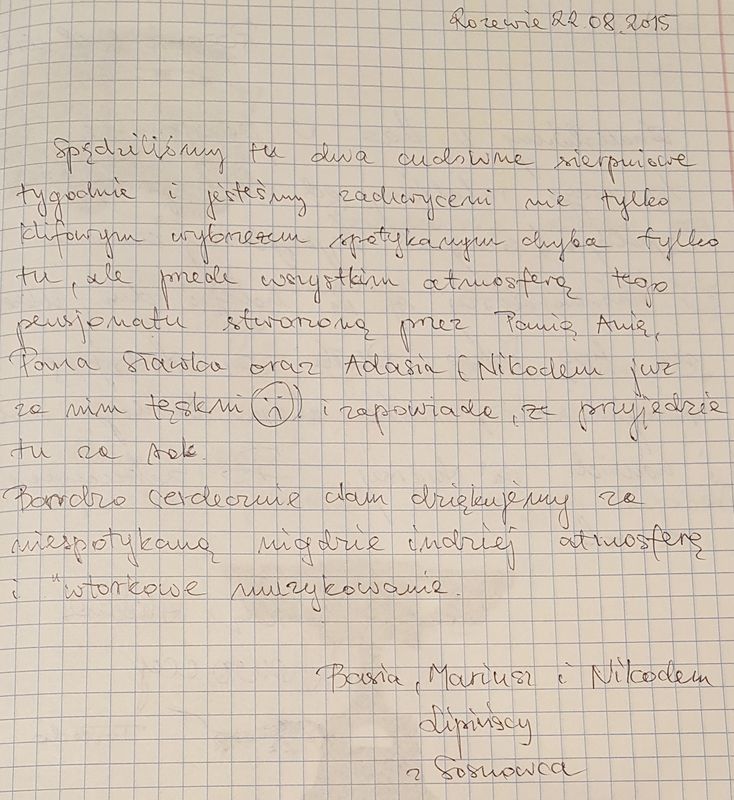 Rozewie 22.08.2015
Spędziliśmy tu dwa cudowne sierpniowe
tygodnie i jesteśmy zachwyceni nie tylko
klifowym wybrzeżem spotykanym chyba tylko
tu, ale przede wszystkim atmosferą tego
pensjonatu stworzoną przez Panią Anię,
Pana Sławka oraz Adasia (Nikodem już
za nim tęskni ☹) i zapowiada, że przyjedzie
tu za rok.
Bardzo serdecznie Wam dziękujemy za
niespotykaną nigdzie indziej atmosferę
i "wtorkowe muzykowanie.
Basia, Mariusz i Nikodem
Lipińscy
z Sosnowca